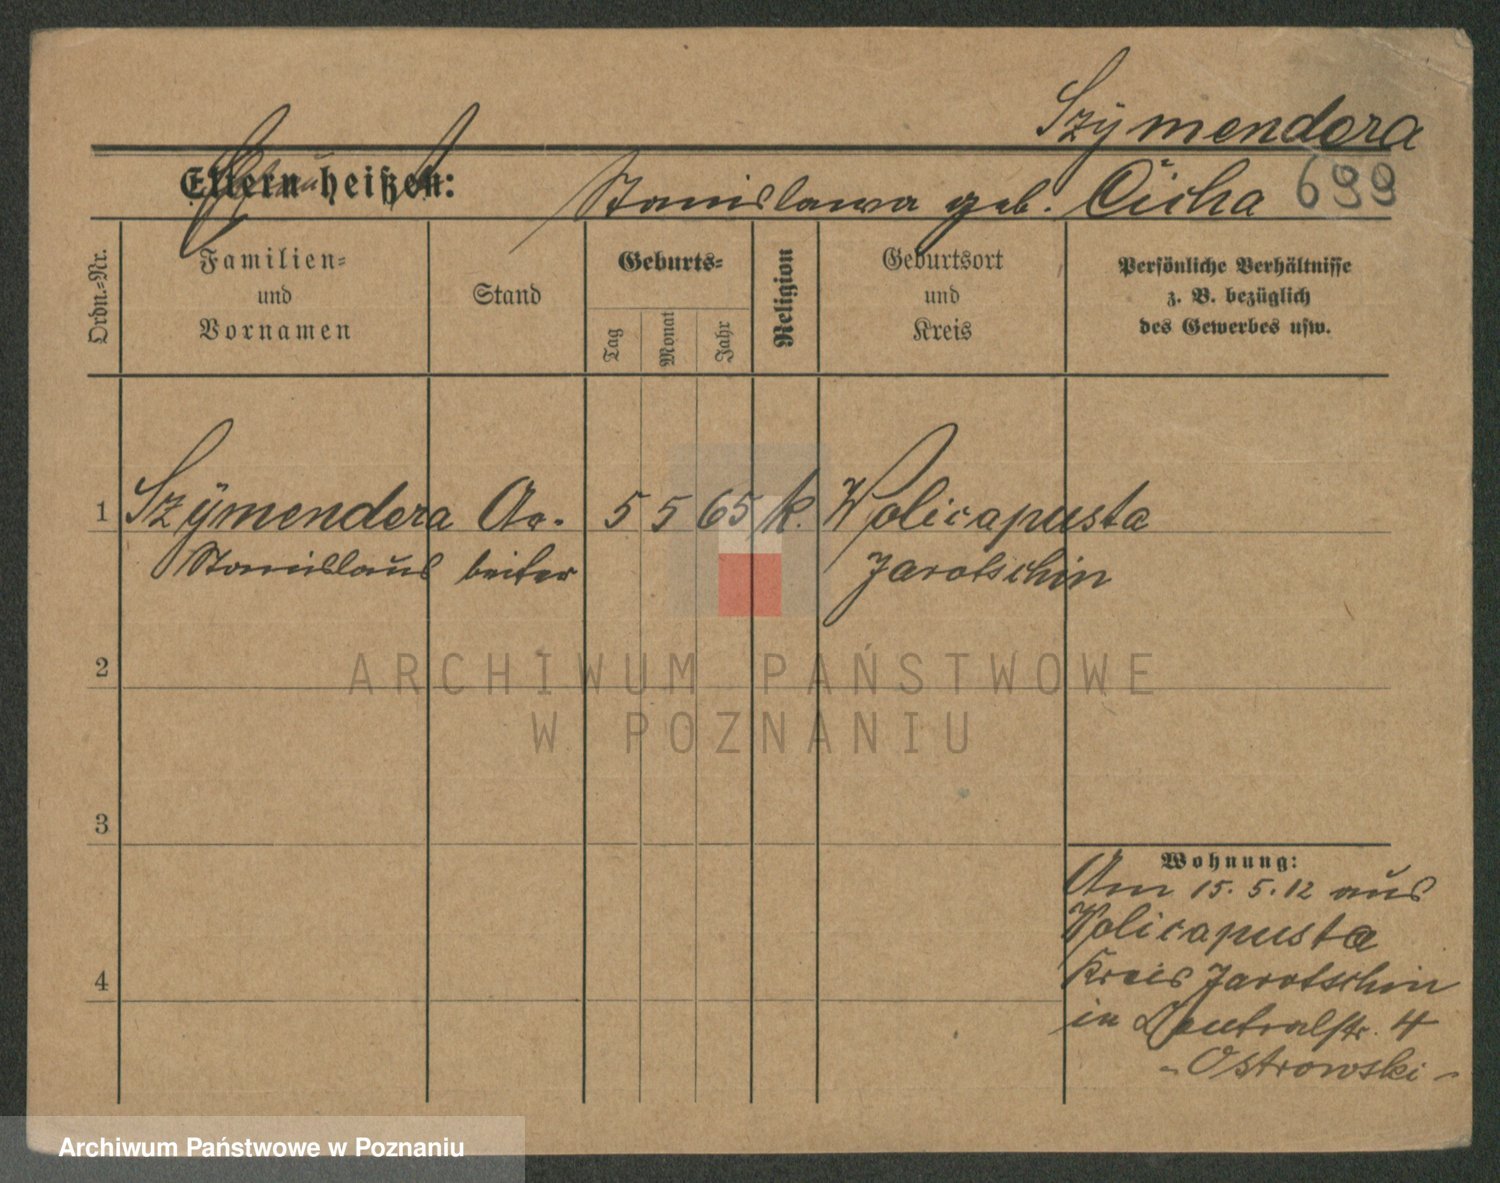 Szymendera
Eltern heißen:
Stanislawa geb. Cicha 699
Ordn.-Nr.
Familien-
und
Vornamen
Stand
Geburts-
Tag
Monat
Jahr
Religion
Geburtsort
und
Kreis
Persönliche Verhältnisse
z. B. bezüglich
des Gewerbes usw.
1 Szymendera Ar- 5 5 65 k. Wolicapusta
Stanislaus beiter Jarotschin
2
3
4
Wohnung:
Am 15. 5. 12 aus
Wolicapusta
Kreis Jarotschin
in Zentralstr. 4
- Ostrowski -
ARCHIWUM PAŃSTWOWE
W POZNANIU
Archiwum Państwowe w Poznaniu